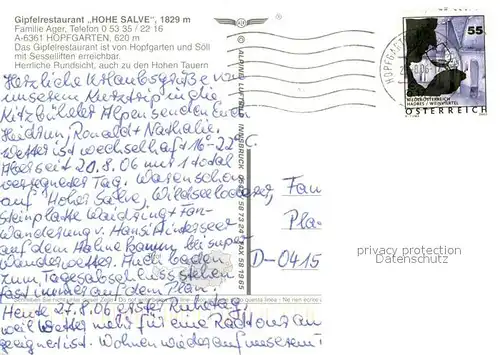 Gipfelrestaurant „HOHE SALVE", 1829 m
Familie Ager, Telefon 0 53 35 / 22 16
A-6361 HOPFGARTEN, 620 m
Das Gipfelrestaurant ist von Hopfgarten und Söll
mit Sesselliften erreichbar.
Herrliche Rundsicht, auch zu den Hohen Tauern
Herzliche Urlaubsgrüße von
unserem Kurztrip in die
Kitzbühler Alpen senden Euch
Heidrun, Ronald + Nathalie.
Wetter ist wechselhaft 16-22°C.
Aber seit 20.8.06 nur 1 total
verregneter Tag. Waren schon
auf Hoher Salve, Wildseeloder,
Steinplatte Waidring + Fan-
Wanderung v. Hansi Hinterseer
auf dem Hahnenkamm bei super
Wanderwetter. Auch baden
zum Tagesabschluss stehen
fast immer auf dem Plan.
Heute 27.8.06 erster Ruhetag,
weil Wetter mehr für eine Radtour
geeignet ist. Wohnen wieder auf unserem
© ALPINE LUFTBILD INNSBRUCK
HOPFGARTEN
8.06
55
NIEDERÖSTERREICH
HADRES / WEINVIERTEL
ÖSTERREICH
Fam
Pla
D-0415
privacy protection
Datenschutz